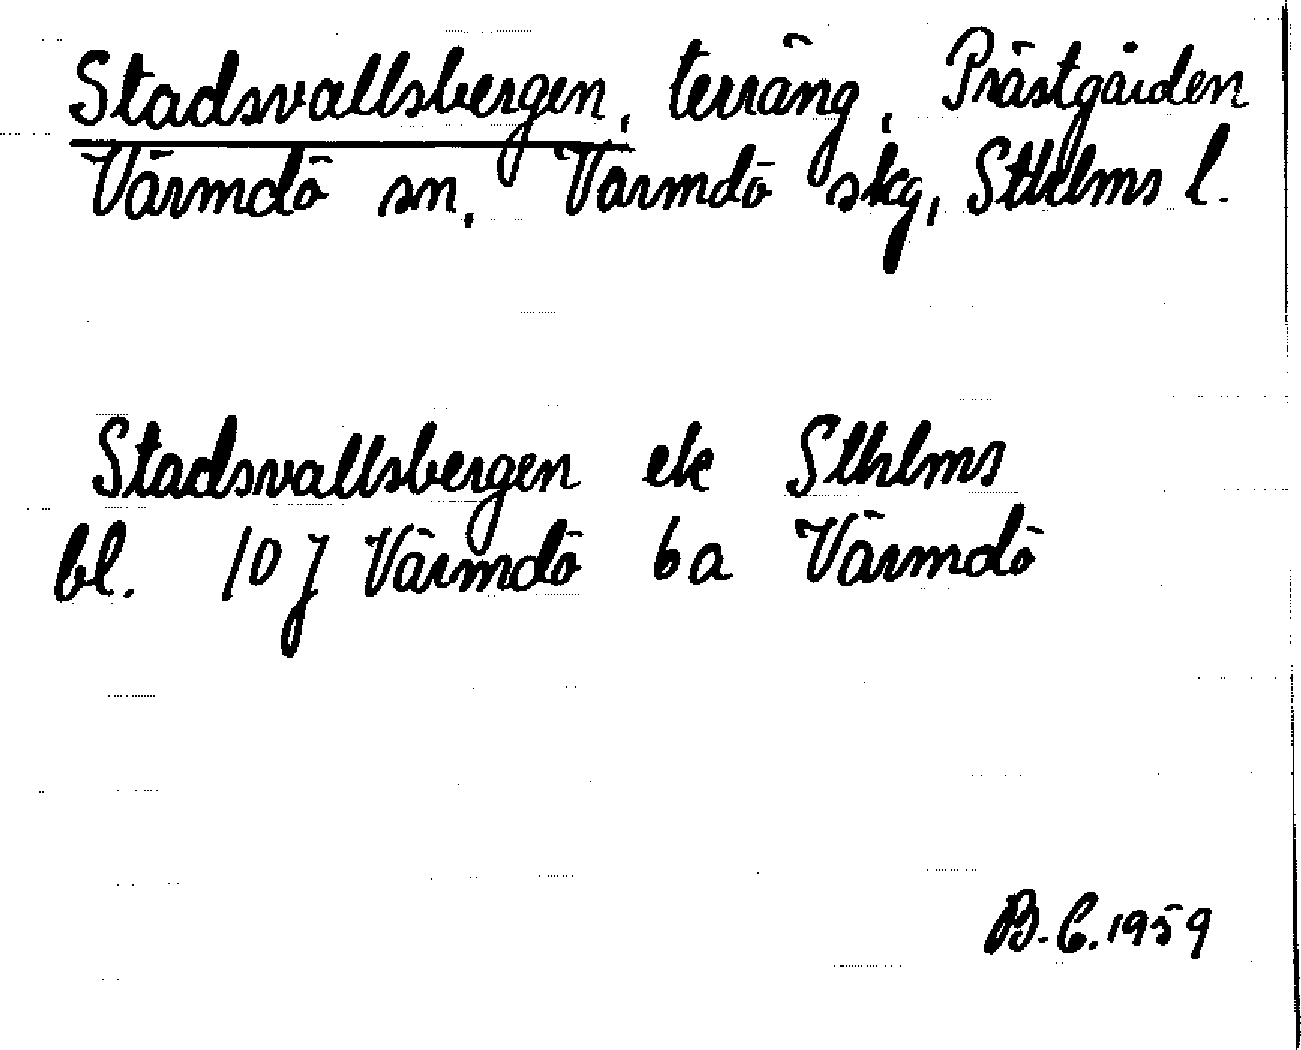 Stadsvallsbergen, terräng, Prästgården
Värmdö sn, Värmdö skg, Sthlms l.
Stadsvallsbergen ek Sthlms
bl. 10 J Värmdö 6 a Värmdö
B.C. 1959